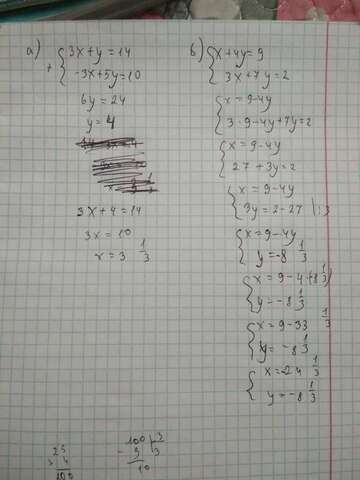 а) { 3x+y=14
+ { -3x+5y=10
6y=24
y=4
3x+4=14
3x=10
x=3 1/3
в) { x+4y=9
{ 3x+7y=2
{ x=9-4y
{ 3·9-4y+7y=2
{ x=9-4y
{ 27+3y=2
{ x=9-4y
{ 3y=2-27 |:3
{ x=9-4y
{ y=-8 1/3
{ x=9-4·(-8 1/3)
{ y=-8 1/3
{ x=9-33 1/3
{ y=-8 1/3
{ x=-24 1/3
{ y=-8 1/3
25
4
100
100
9
10
3